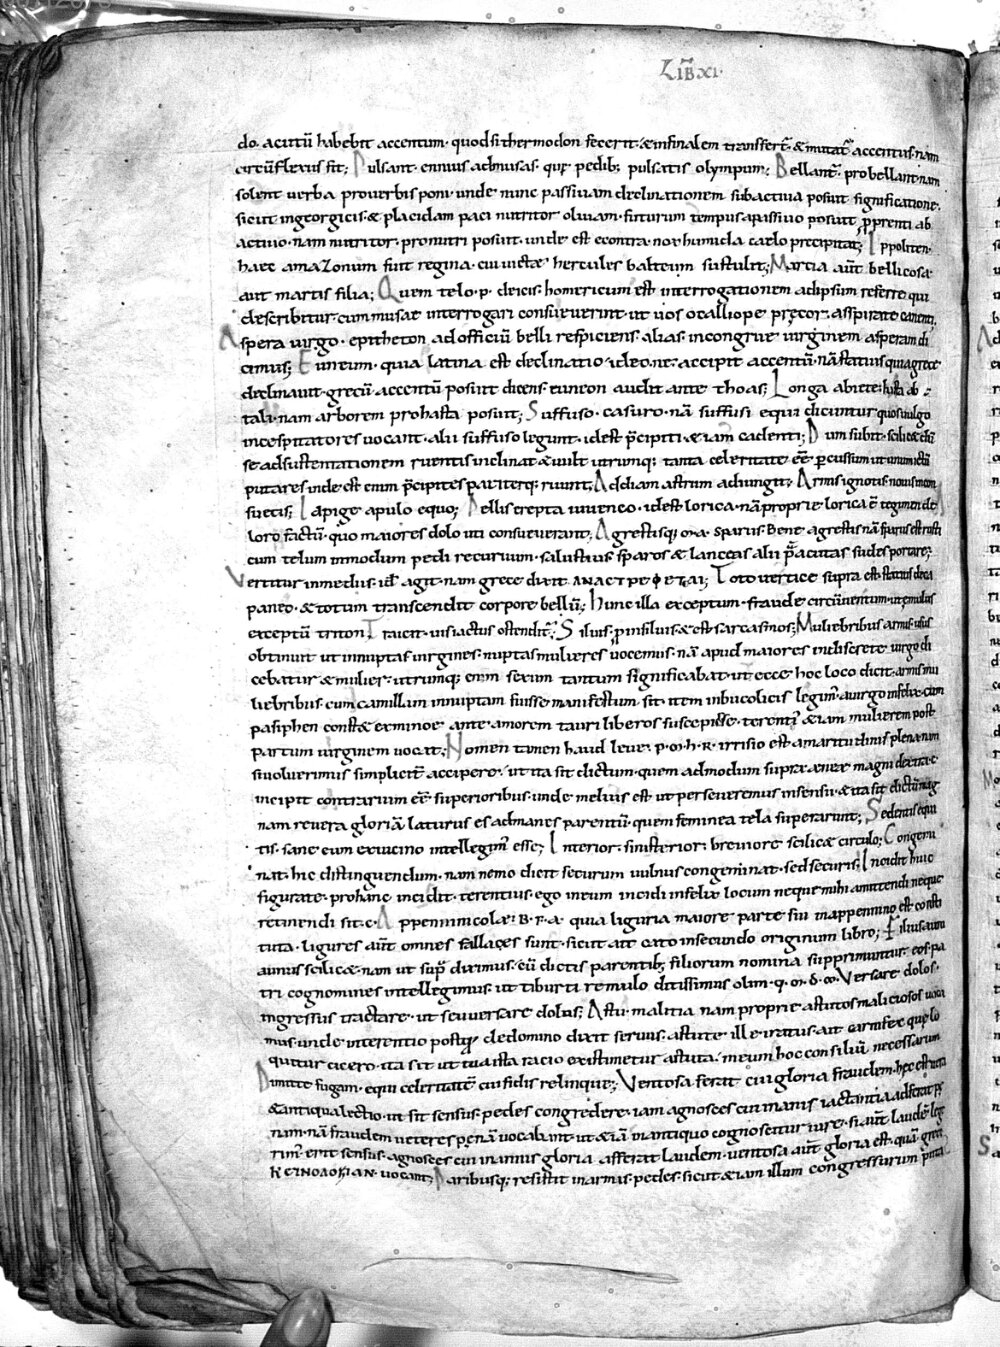 LIB̃ XI·
do· acutū habebit accentum· quod si thermodon fecerit· & in finalem transfert̃· & mutat̃ accentus· nam
circūflexus fit; Pulsant· ennius ad musas· quę pedib; pulsatis olympum; Bellant̃· pro bellant· nam
solent verba pro verbis poni· unde nunc passivam declinationem sub activa posuit significatione·
sicut in georgicis· & placidam paci nutritor olivam· futurum tempus a passivo posuit p̱ prenti ab
activo· nam nutritor· pro nutri posuit· unde est econtra· nox humida caelo precipitat; Ippoliten·
haec amaZonum fuit regina· cui victae hercules balteum sustulit; Martia aūt bellicosa·
aut martis filia; Quem telo· p· deicis· homericum est interrogationem ad ipsum referre qui
describitur· cum musae interrogari consueverint· ut vos o calliope pręcor· asspirate canenti;
Aspera virgo· epitheton ad officiū belli respiciens· alias incongrue virginem asperam di
cimus; Euneum· quia latina est declinatio· ideo· ne· accipit accentū· nā statius qui a grece
declinavit· grecū accentū posuit dicens· euneon audit ante thoas; Longa abiete· hasta ab
tali· nam arborem pro hasta posuit; Suffuso· casuro· nā suffusi equi dicuntur quos vulgo
incespitatores vocant· alii suffuso legunt· id est p̄cipiti & iam cadenti; Dum subit· scilic&
se ad sustentationem ruentis inclinat & vult utrumq; tanta celeritate eē percussum ut unum ictū
putares inde est enim p̄cipites pariterq; ruunt; Addiam astrum adiungit; Armis ignotis· novis
suetis; Iapige apulo equo; Pellis erepta iuvenco· id est lorica· nā proprie lorica ē tegimen de
loro factū· quo maiores dolo uti consueverant; Agrestisq· m·a· sparus· Bene agrestis nā sparus est rusti
cum telum in modum pedi recurvum· salustius· sparos & lanceas alii p̄ acutas sudes portare;
Vertitur in medius· id̄ agit· nam grece dixit ΑΝΑCΤΡΕΦΕΤΑΙ; Toto vertice supra est· statius de ca
paneo· & totum transcendit corpore bellū; Hunc illa exceptum· fraude circūventum· ut emulus
exceptū triton; Traicit· vis iactus ostendit̃; Siluis· p̱ in siluis· & est sarcasmos; Muliebribus armis· usus
obtinuit ut innuptas virgines· nuptas mulieres vocemus· nā apud maiores indiscrete virgo di
cebatur & mulier· utrumq; enim sexum tantum significabat· ut ecce hoc loco dicit· armis mu
liebribus· cum camillam innuptam fuisse manifestum sit· item in bucolicis legim̃· a virgo infelix· cum
pasiphen constet ex minoe ante amorem tauri liberos suscepisse· terenti· & iam mulierem post
partum virginem vocat; Nomen tamen haud leve· p·m·h·R· irrisio est amaritudinis plena· nam
si voluerimus simplicit̃ accipere· ut ita sit dictum· quem ad modum supra aeneae magni dextra c
incipit contrarium eē superioribus· unde melius est ut perseveremus in sensu· & ita sit dictū· mag
nam revera gloriā laturus es ad manes parentū· quem feminea tela superarunt; Sedentis equi
tis· sane eum ex vicino intellegim̃ esse; Interior· sinisterior· breviore scilic& circulo; Congemi
nat· hic distinguendum· nam nemo dicit securum vulnus congeminat· sed securis; Incidit huic
figurate· pro hanc incidit· terentius· ego in eum incidi infelix locum neque mihi amittendi neque
retinendi sit· c· Appenninicolae· B·F·A· quia liguria maiore parte sui in appennino est consti
tuta· ligures aūt omnes fallaces sunt· sicut ait cato in secundo originum libro; Filius auni
aunus scilic&· nam ut sup̄ diximus· eū dictis parentib; filiorum nomina supprimuntur· eos pa
tri cognomines intellegimus· ut tiburti remulo ditissimus olim· q·m·d·m· Versare dolos·
ingressus tractare· ut seu versare dolus; Astu· malitia· nam proprie astutos maliciosos voca
mus· unde in terentio postq̄ de domino dixit servus· astute· ille iratus ait carnifex quę lo
quitur cicero· ita sit ut tua ista racio existimetur astuta· meum hoc consiliū necessarium
Dimitte fugam· equi celeritatē cui fidis relinque; Ventosa ferat cui gloria fraudem· hęc est
& antiqua lectio· ut sit sensus· pedes congredere· iam agnosces cui inanis iactantia adferat pę
nam· nā fraudem veteres penā vocabant· ut & iā in antiquo cognoscitur iure· si aūt laudē leg
rim̃· erit sensus· agnosces cui inanius gloria afferat laudem· ventosa aūt gloria est quā greci
ΚΕΙΝΟΔΟΞΙΑΝ· vocant; Paribusq; resistit in armis· pedes· sicut & iam illum congressurum